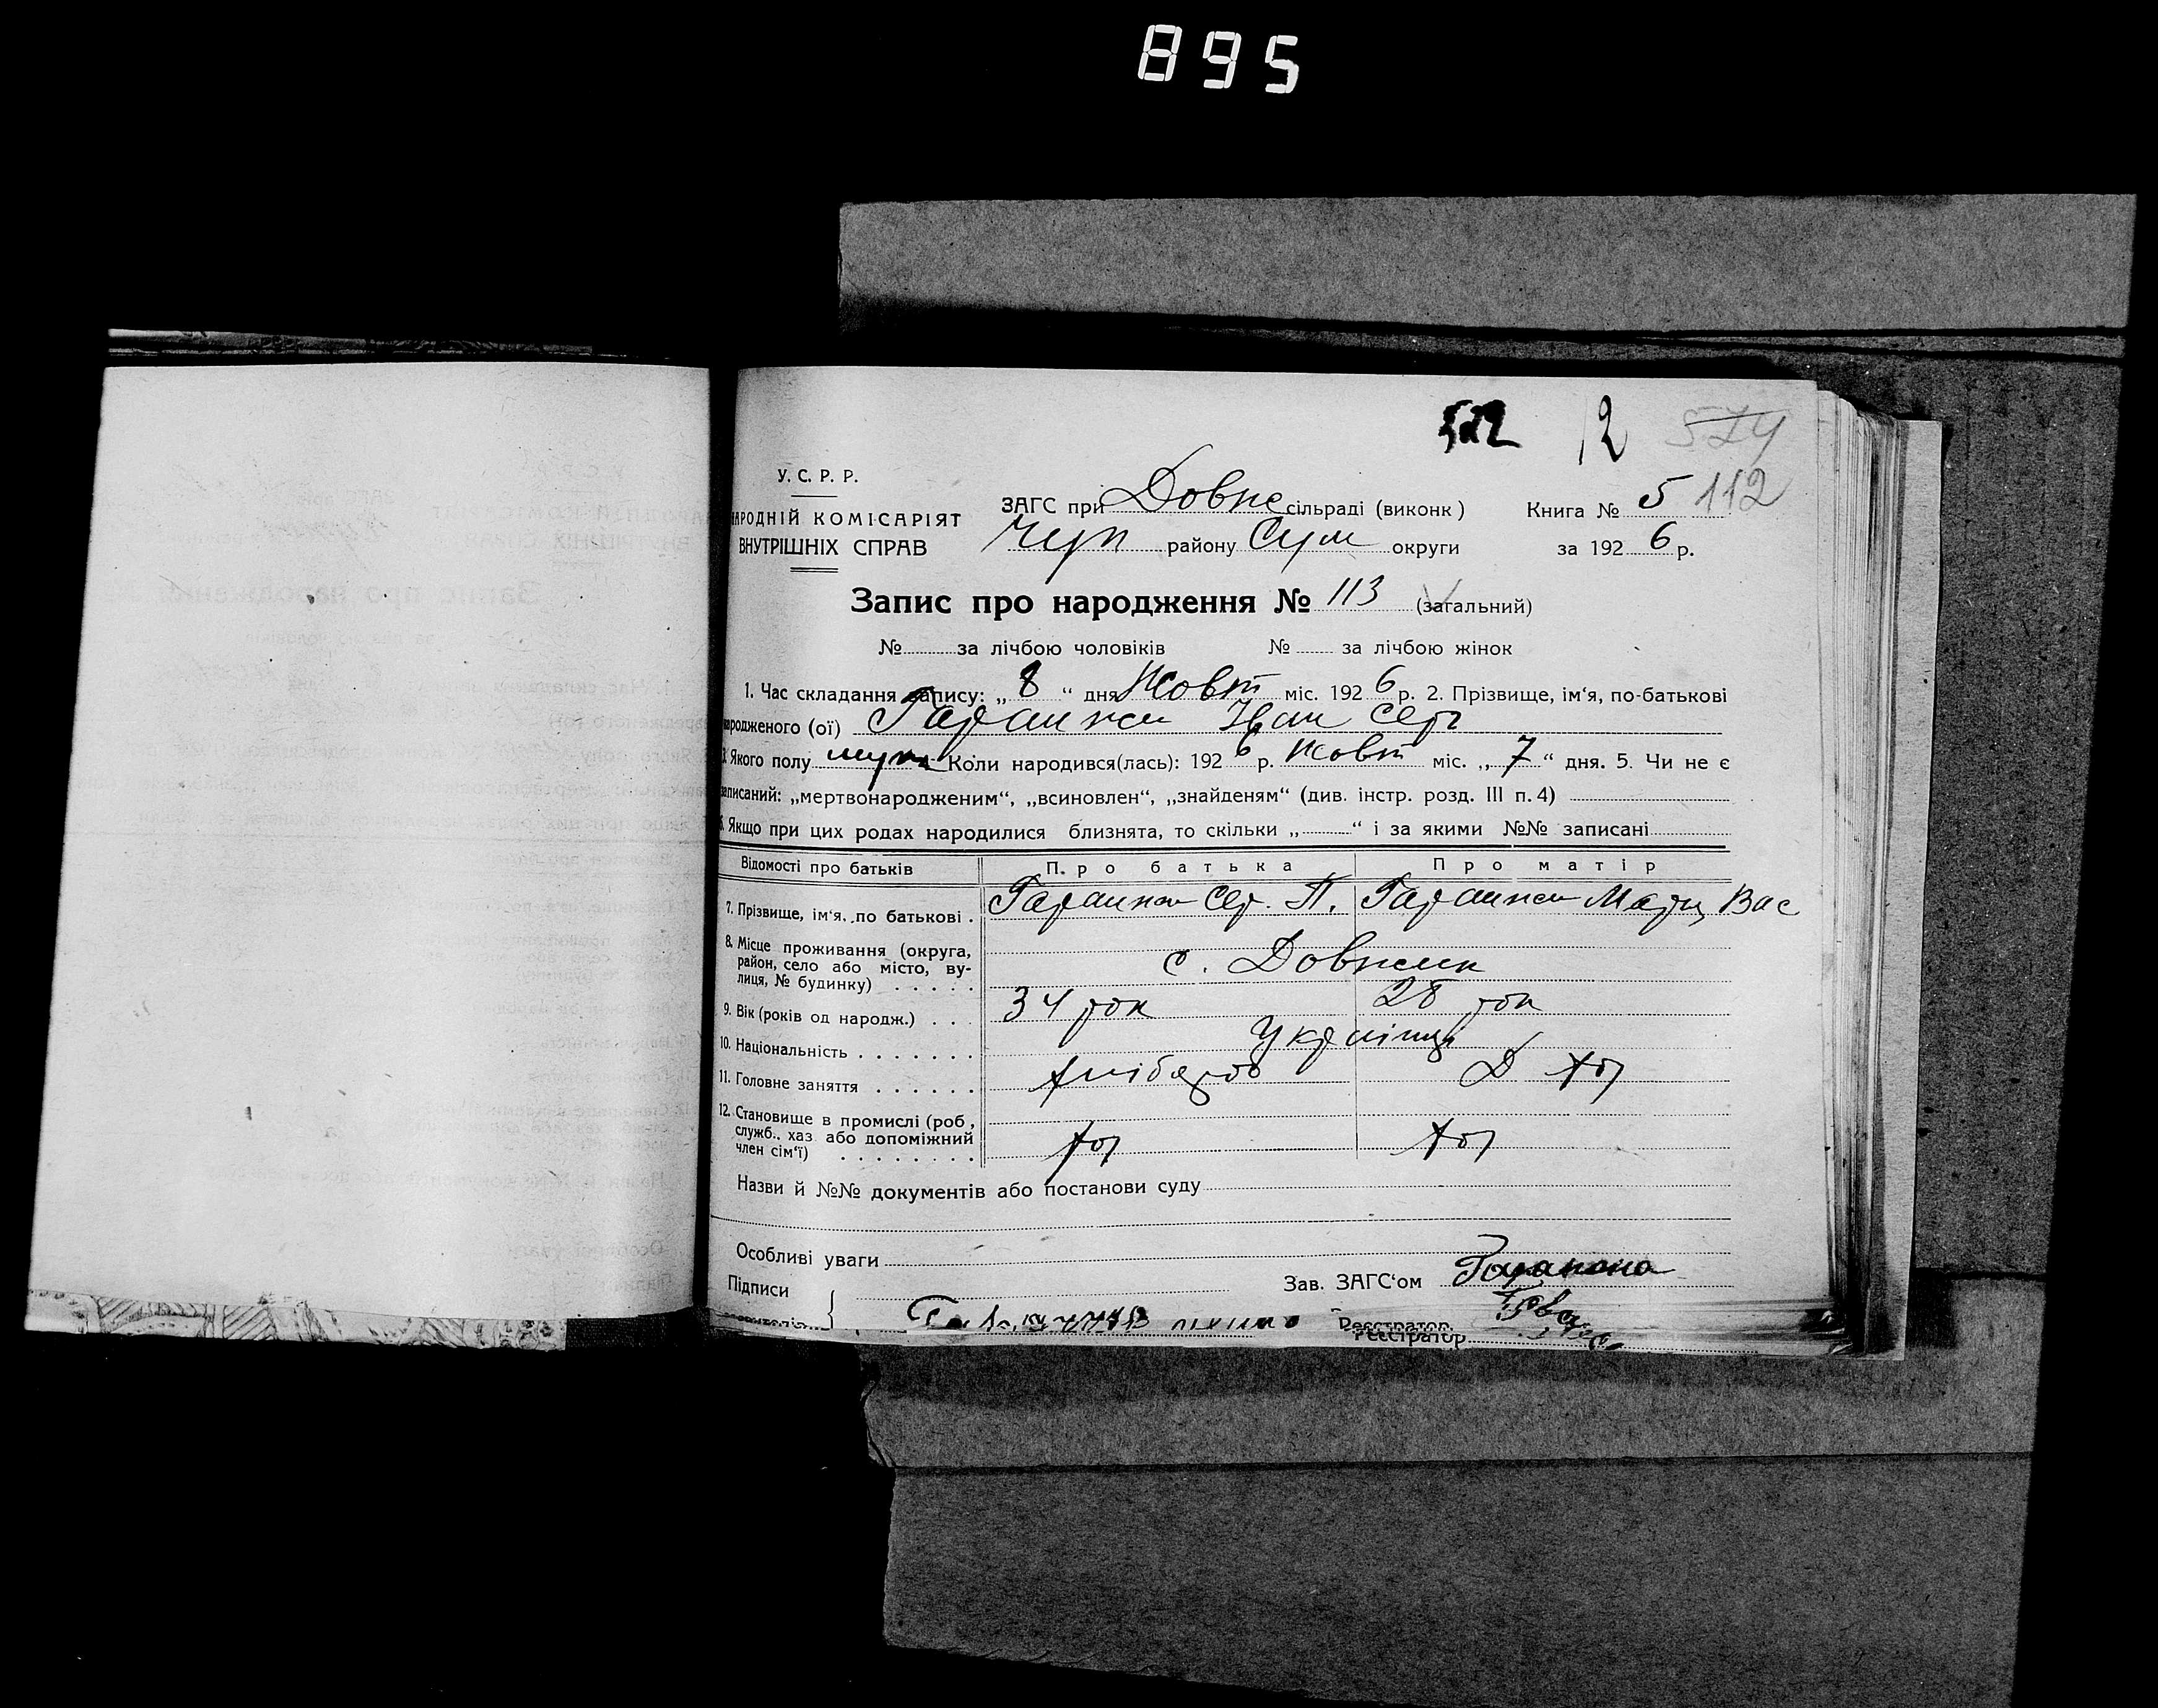 895
522 12 574
У. С. Р. Р.
НАРОДНІЙ КОМІСАРІЯТ
ВНУТРІШНІХ СПРАВ
ЗАГС при Довже сільраді (виконк)
Чуп району Сум округи
Книга № 5 112
за 1926 р.
Запис про народження № 113 (загальний)
№ за лічбою чоловіків № за лічбою жінок
1. Час складання запису: „8“ дня Жовт міс. 1926 р. 2. Прізвище, ім‘я, по-батькові
народженого (ої) Іван Серг
Якого полу муж Коли народився(лась): 1926 р. Жовт міс. „7“ дня. 5. Чи не є
записаний: „мертвонародженим“, „всиновлен“, „знайденям“ (див. інстр. розд. III п. 4)
Якщо при цих родах народилися близнята, то скільки „ “ і за якими №№ записані
Відомості про батьків Про батька Про матір
7. Прізвище, ім‘я, по батькові . Сер. П. Вас
8. Місце проживання (округа,
район, село або місто, ву-
лиця, № будинку) с. Довжик
9. Вік (років од народж.) 34 рок 28 рок
10. Національність Українці
11. Головне заняття хлібороб Д хоз
12. Становище в промислі (роб,
служб., хаз або допоміжний
член сім‘ї) хоз хоз
Назви й №№ документів або постанови суду
Особливі уваги
Підписи Зав. ЗАГС‘ом
Реєстратор
Реєстратор